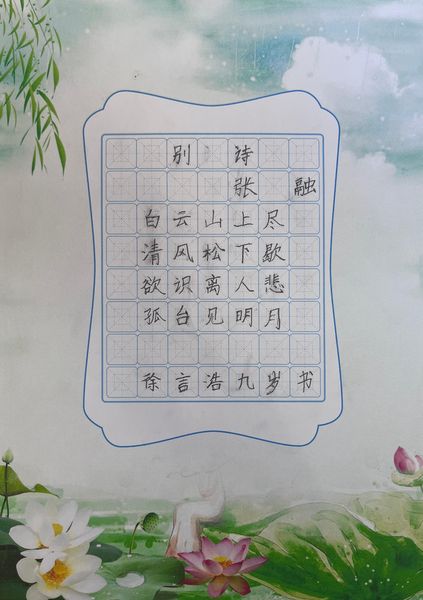 别诗
张融
白云山上尽
清风松下歇
欲识离人悲
孤台见明月
徐言浩九岁书